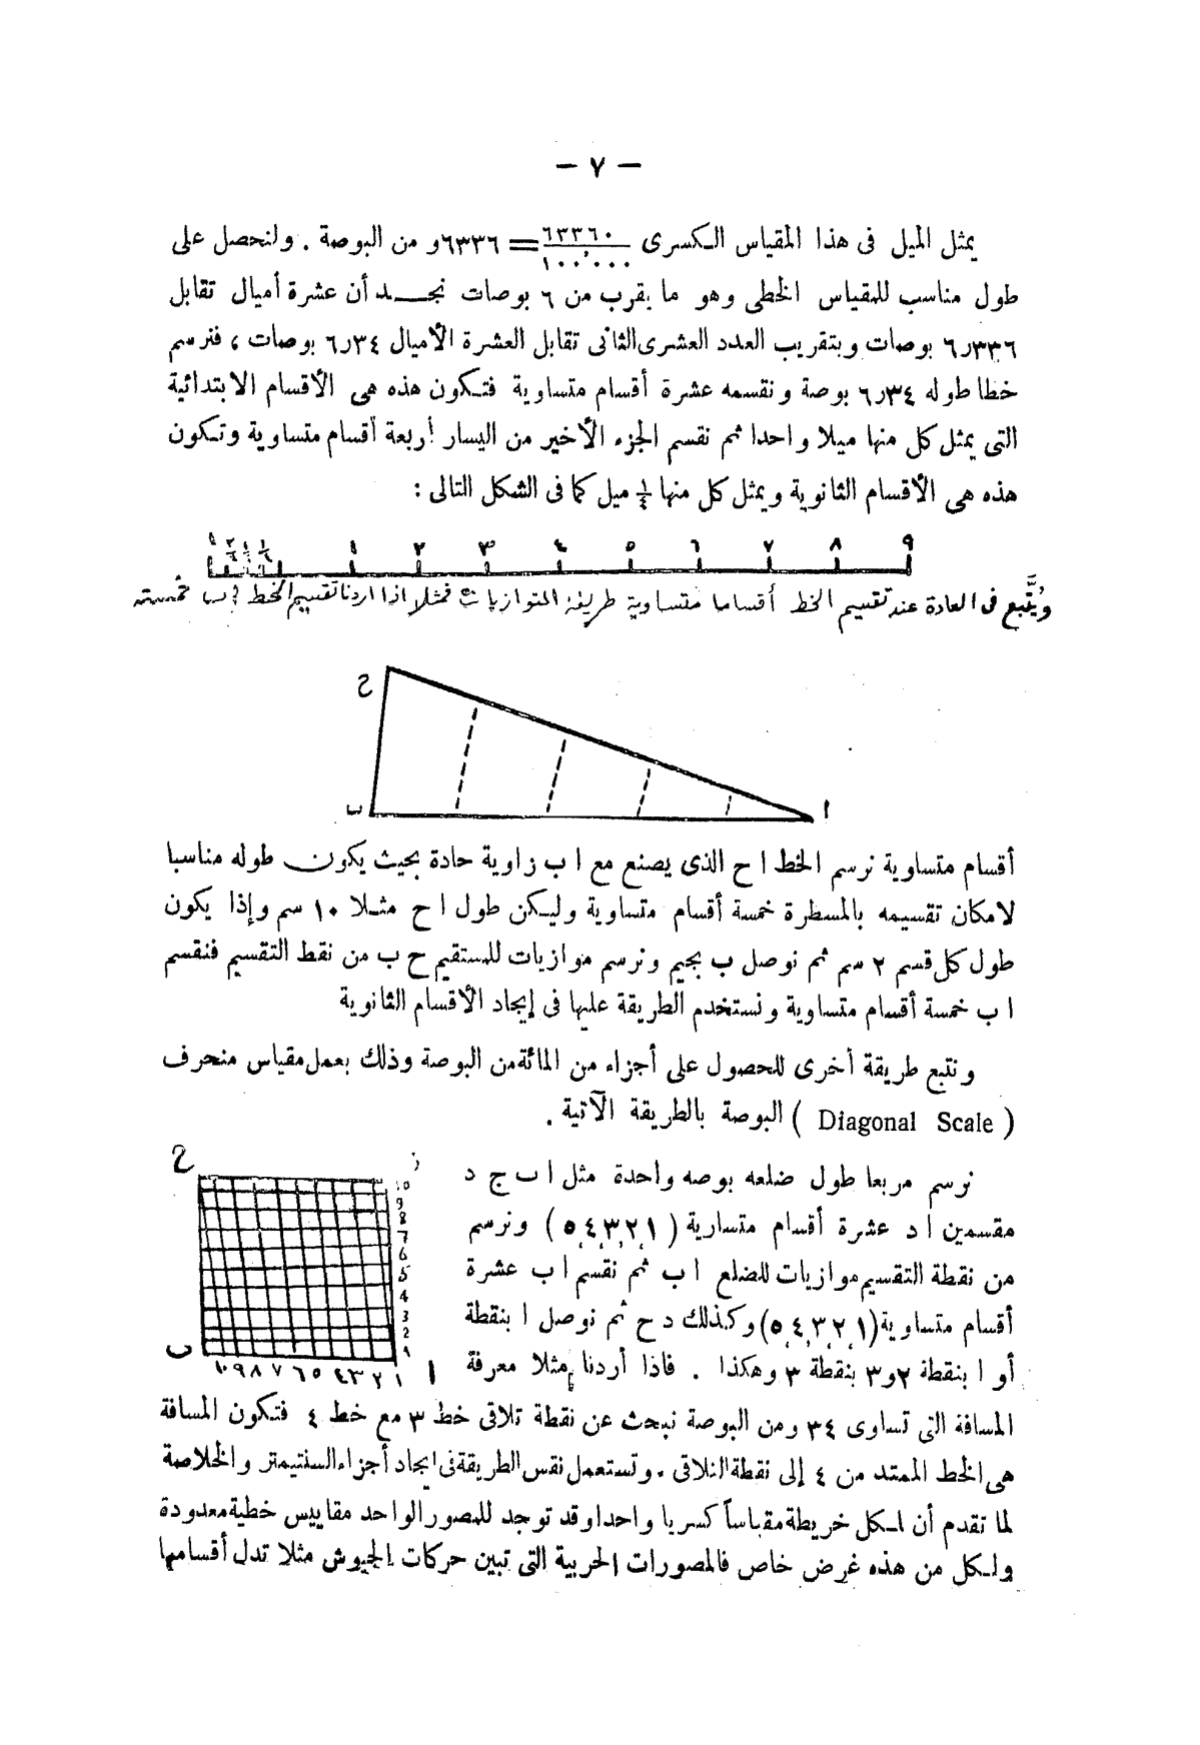 — ٧ —
يمثل الميل فى هذا المقياس الكسرى ٦٣٣٦٠/١٠٠,٠٠٠ = ٦٣٣٦و من البوصة . ولنحصل على
طول مناسب للمقياس الخطى وهو ما يقرب من ٦ بوصات نجد أن عشرة أميال تقابل
٦٫٣٣٦ بوصات وبتقريب العدد العشرى الثانى تقابل العشرة الأميال ٦٫٣٤ بوصات ، فنرسم
خطا طوله ٦٫٣٤ بوصة ونقسمه عشرة أقسام متساوية فتكون هذه هى الأقسام الابتدائية
التى يمثل كل منها ميلا واحدا ثم نقسم الجزء الأخير من اليسار أربعة أقسام متساوية وتكون
هذه هى الأقسام الثانوية ويمثل كل منها ¼ ميل كما فى الشكل التالى :
١ ٢ ٣ ٤ ٥ ٦ ٧ ٨ ٩
ويُتَّبع فى العادة عند تقسيم الخط أقساما متساوية طريقة المتوازيات فمثلا اذا اردنا تقسيم الخط ا ب خمسة
ح
ب ا
أقسام متساوية نرسم الخط ا ح الذى يصنع مع ا ب زاوية حادة بحيث يكون طوله مناسبا
لامكان تقسيمه بالمسطرة خمسة أقسام متساوية وليكن طول ا ح مثلا ١٠ سم وإذا يكون
طول كل قسم ٢ سم ثم نوصل ب بجيم ونرسم موازيات للمستقيم ح ب من نقط التقسيم فنقسم
ا ب خمسة أقسام متساوية ونستخدم الطريقة عليها فى إيجاد الأقسام الثانوية
ونتبع طريقة أخرى للحصول على أجزاء من المائة من البوصة وذلك بعمل مقياس منحرف
( Diagonal Scale ) البوصة بالطريقة الآتية .
نرسم مربعا طول ضلعه بوصه واحدة مثل ا ب ج د
مقسمين ا د عشرة أقسام متسارية ( ١,٢,٣,٤,٥ ) ونرسم
من نقطة التقسيم موازيات للضلع ا ب ثم نقسم ا ب عشرة
أقسام متساوية (١,٢,٣,٤,٥) وكذلك د ح ثم نوصل ا بنقطة
أو ا بنقطة ٢ و٣ بنقطة ٣ وهكذا . فاذا أردنا مثلا معرفة
ح
10
9
8
7
6
5
4
3
2
ب ١٠ ٩ ٨ ٧ ٦ ٥ ٤ ٣ ٢ ١ ا
المسافة التى تساوى ٣٤ ومن البوصة نبحث عن نقطة تلاقى خط ٣ مع خط ٤ فتكون المسافة
هى الخط الممتد من ٤ إلى نقطة التلاقى . وتستعمل نفس الطريقة فى ايجاد أجزاء السنتيمتر والخلاصة
لما تقدم أن لكل خريطة مقياساً كسريا واحدا وقد توجد للمصور الواحد مقاييس خطية معدودة
ولكل من هذه غرض خاص فالمصورات الحربية التى تبين حركات الجيوش مثلا تدل أقسامها